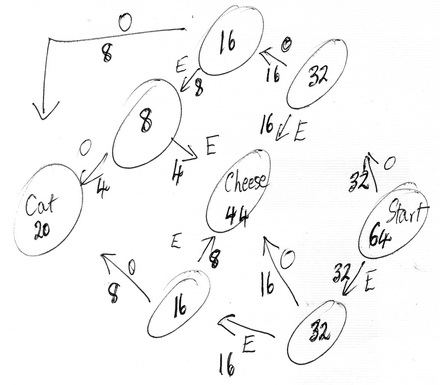 O
8
16
O
16
32
E
8
8
16
E
O
4
4
E
Cheese
44
32
O
Start
64
Cat
20
E
8
O
16
32
E
O
8
16
32
E
16